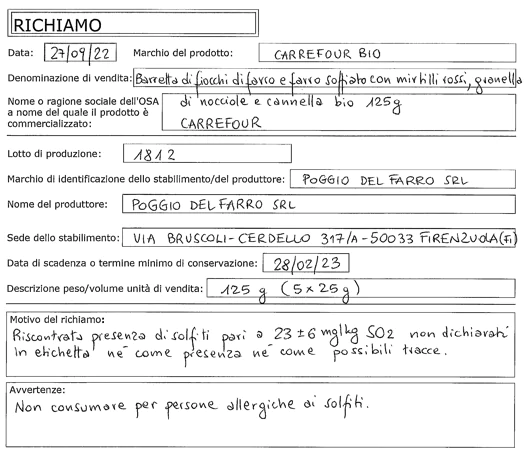 RICHIAMO
Data: 27/09/22 Marchio del prodotto: CARREFOUR BIO
Denominazione di vendita: Barretta di fiocchi di farro e farro soffiato con mirtilli rossi, granella
Nome o ragione sociale dell'OSA di nocciole e cannella bio 125g
a nome del quale il prodotto è
commercializzato: CARREFOUR
Lotto di produzione: 1812
Marchio di identificazione dello stabilimento/del produttore: POGGIO DEL FARRO SRL
Nome del produttore: POGGIO DEL FARRO SRL
Sede dello stabilimento: VIA BRUSCOLI-CERDELLO 317/A-50033 FIRENZUOLA(FI)
Data di scadenza o termine minimo di conservazione: 28/02/23
Descrizione peso/volume unità di vendita: 125 g (5x25g)
Motivo del richiamo:
Riscontrata presenza di solfiti pari a 23±6 mg/kg SO2 non dichiarati
in etichetta né come presenza né come possibili tracce.
Avvertenze:
Non consumare per persone allergiche ai solfiti.